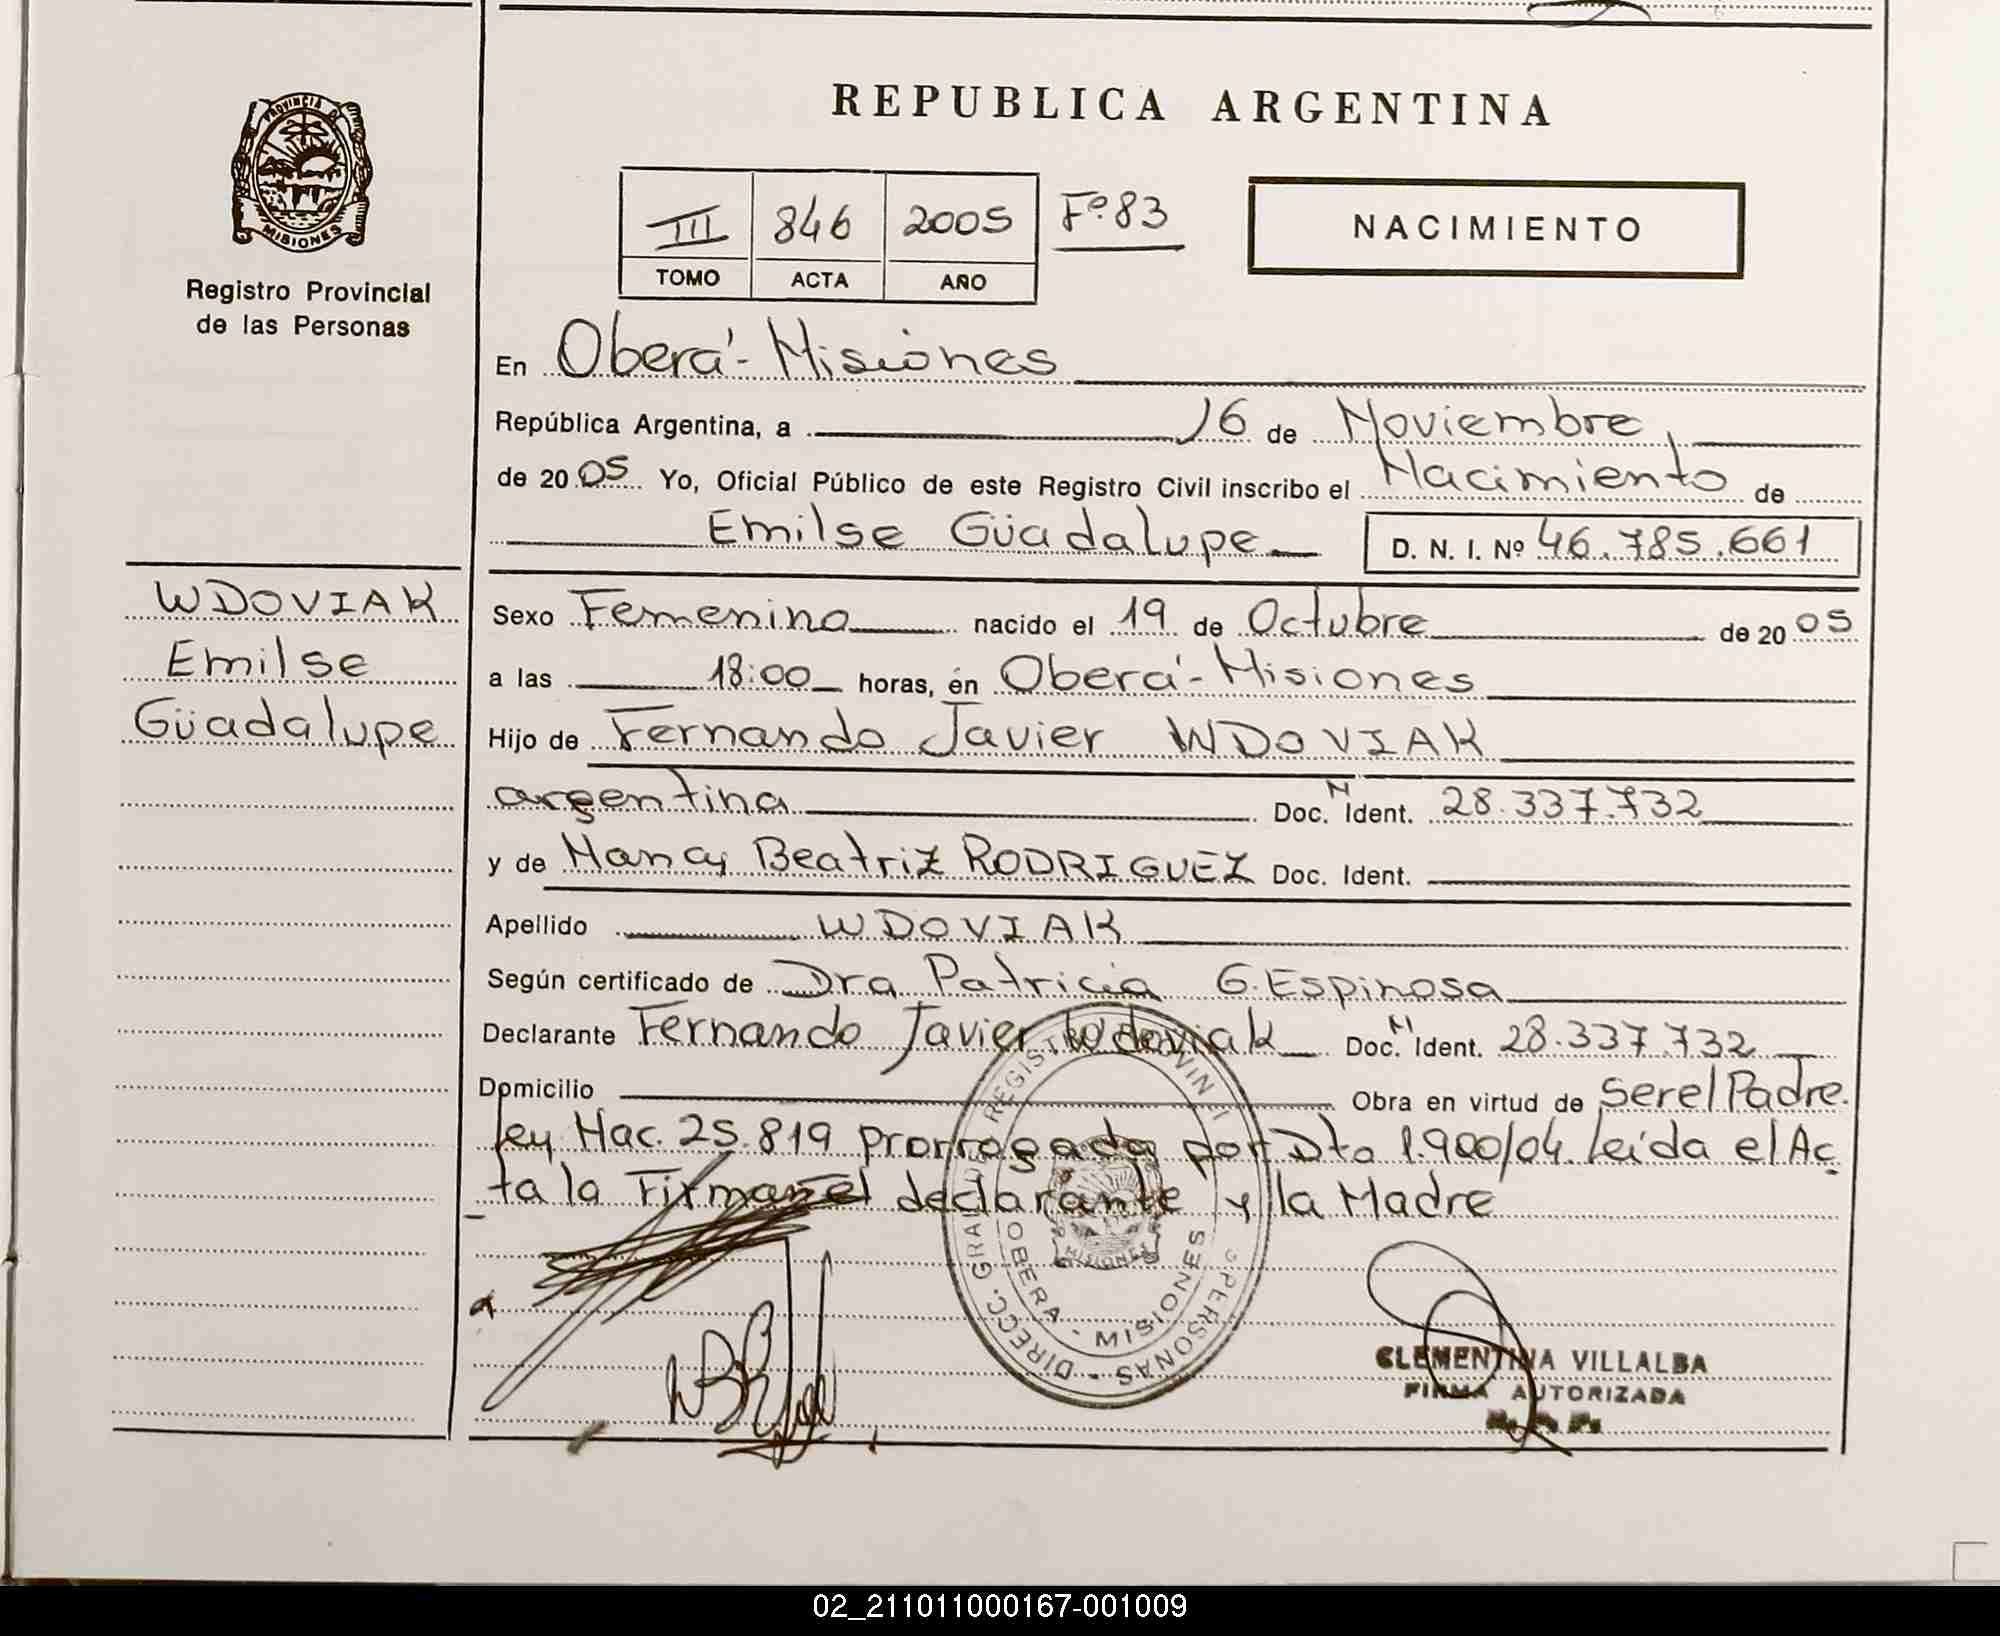 REPUBLICA ARGENTINA
PROVINCIA D
MISIONES
Registro Provincial
de las Personas
III 846 2005 Fº 83
TOMO ACTA AÑO
NACIMIENTO
En Oberá - Misiones
República Argentina, a 16 de Noviembre,
de 2005 Yo, Oficial Público de este Registro Civil inscribo el Nacimiento de
Emilse Güadalupe D. N. I. Nº 46.785.661
WDOVIAK
Emilse
Güadalupe
Sexo Femenino nacido el 19 de Octubre de 2005
a las 18:00 horas, en Oberá - Misiones
Hijo de Fernando Javier WDOVIAK
argentina Doc. N Ident. 28.337.732
y de Nancy Beatriz RODRIGUEZ Doc. Ident.
Apellido WDOVIAK
Según certificado de Dra Patricia G. Espinosa
Declarante Fernando Javier Wdoviak Doc. N Ident. 28.337.732
Domicilio Obra en virtud de ser el Padre.
ley Nac. 25.819 prorrogada por Dto 1.900/04. Leída el Ac
ta la Firman el declarante y la Madre
DIRECC. GRAL. DE REGISTRO PERSONAS
OBERA - MISIONES
MISIONES
CLEMENTINA VILLALBA
FIRMA AUTORIZADA
02_211011000167-001009